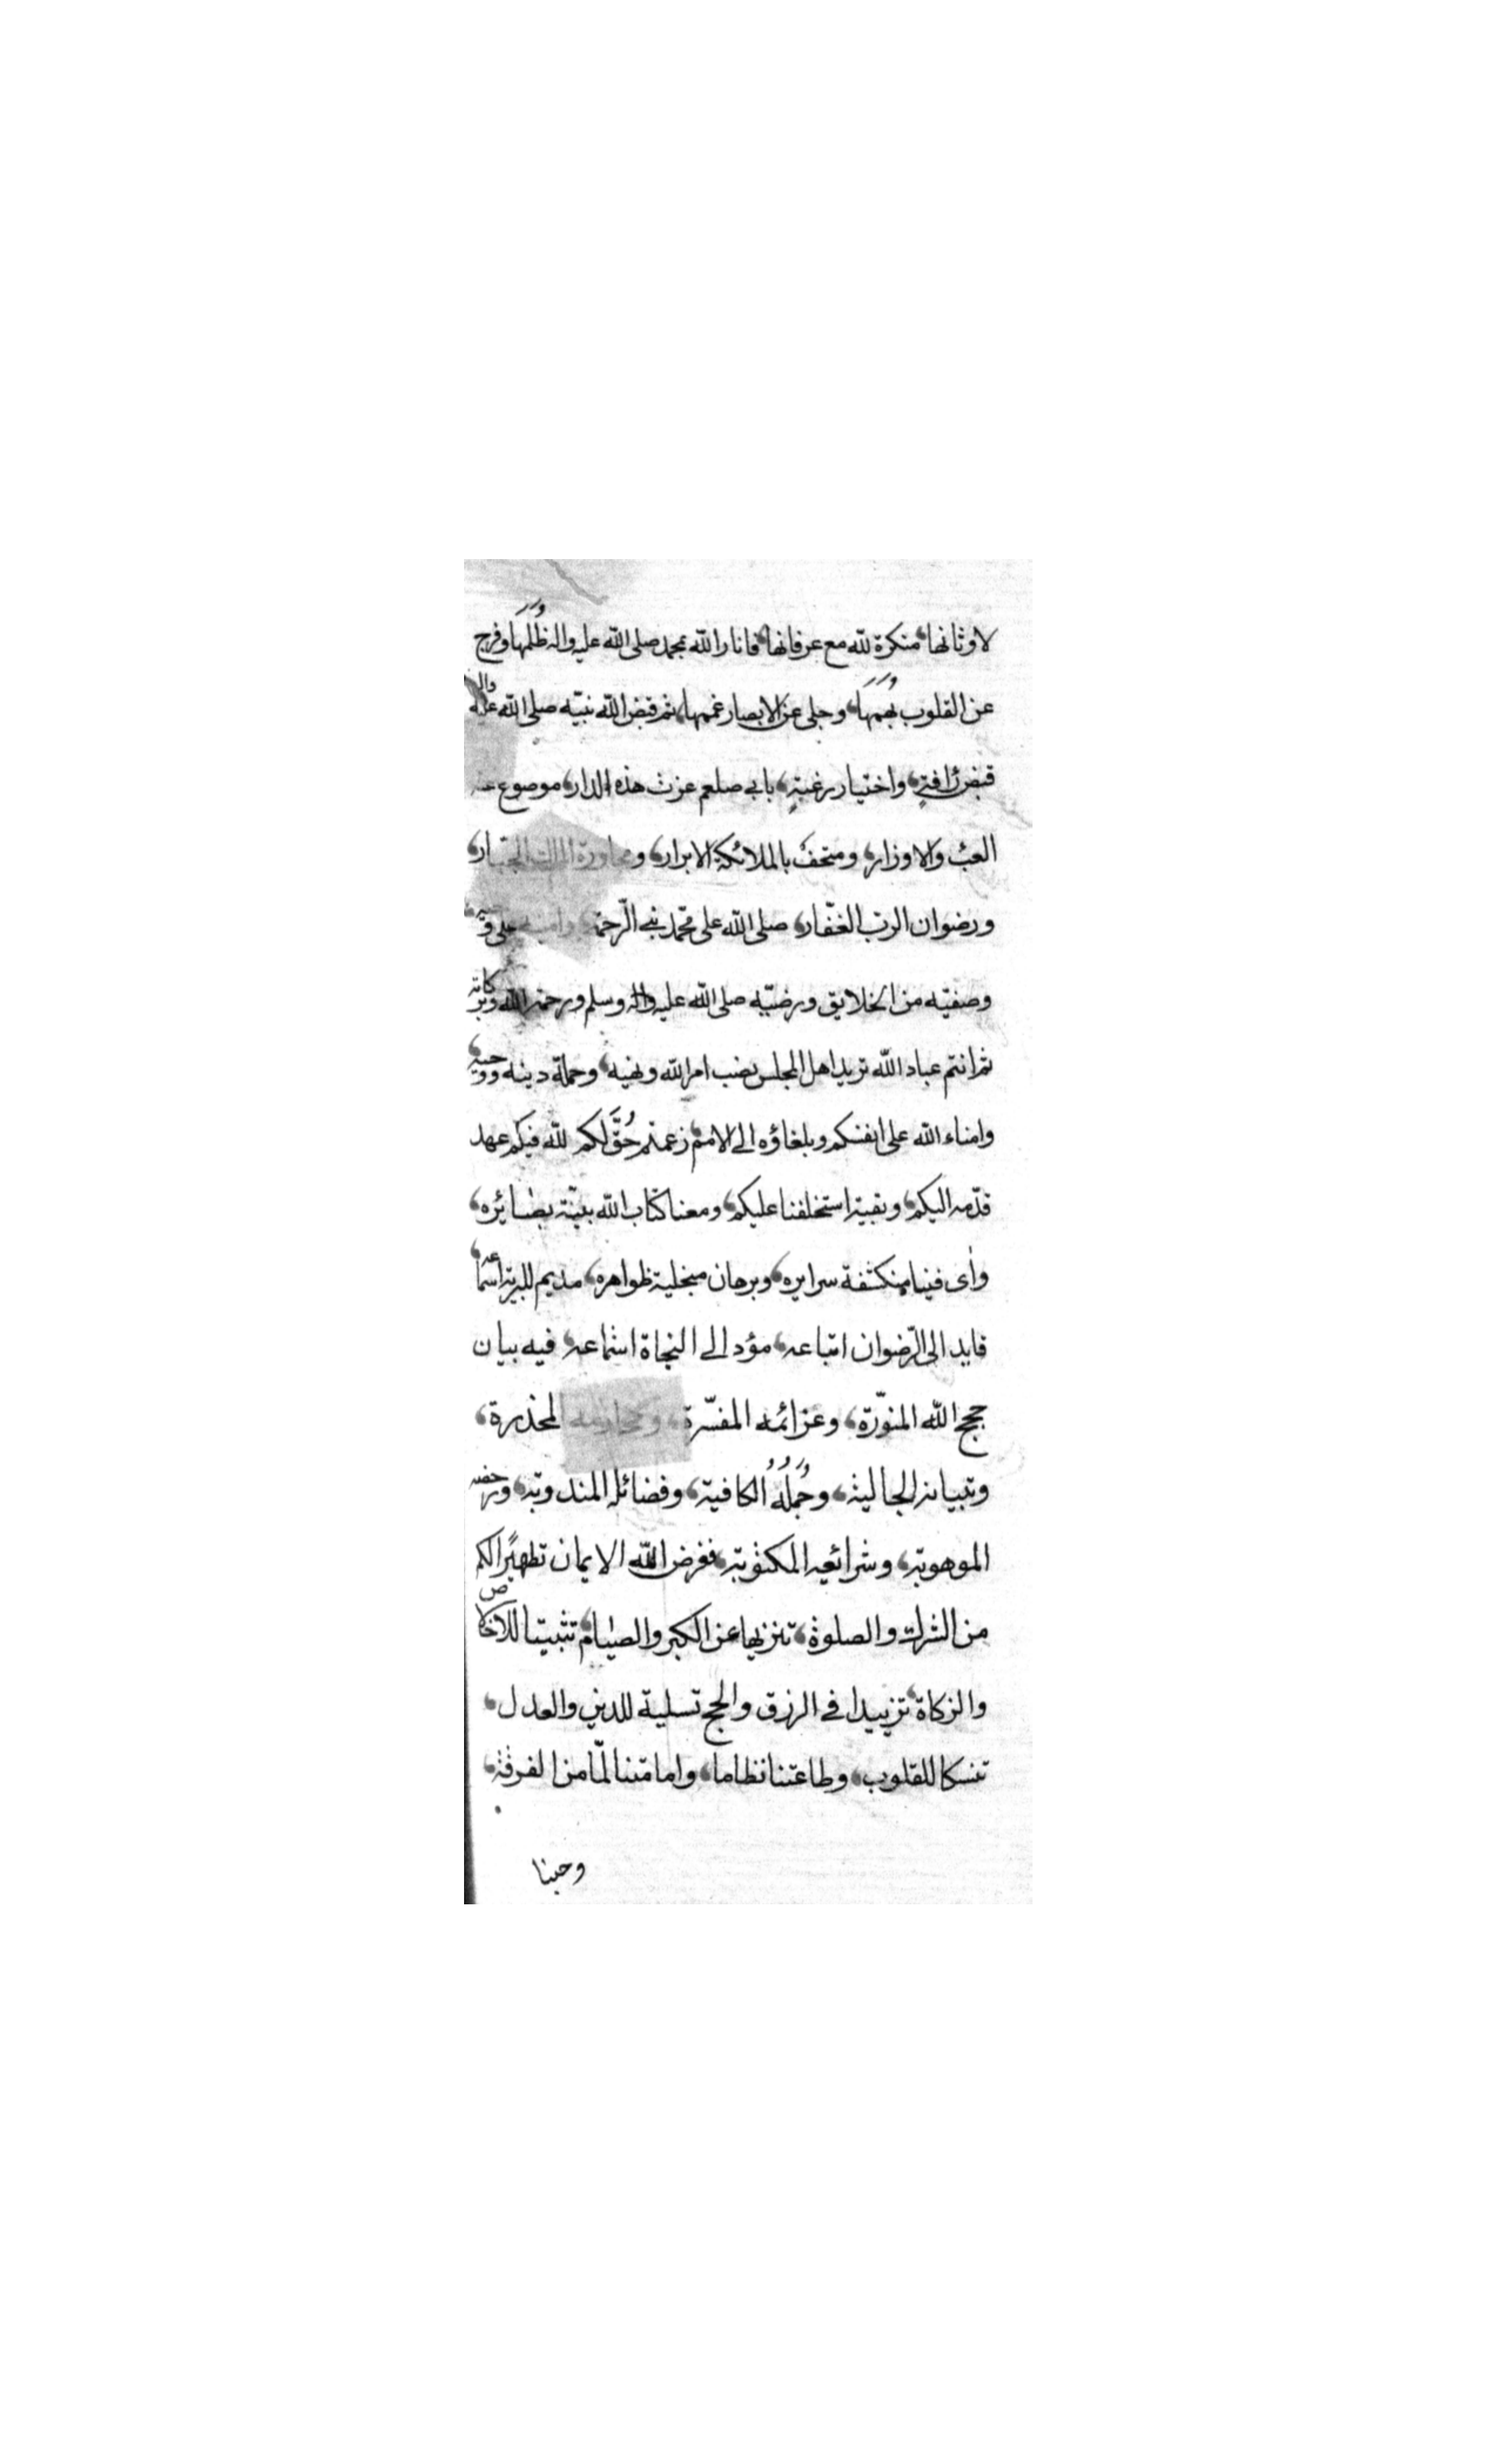 لاوثانها، منكرة لله مع عرفانها، فانار الله بمحمد صلى الله عليه واله ظُلَمَها وفرج
عن القلوب بُهَمَهَا، وجلى عن الابصار غممها، ثم قبض الله نبيّه صلى الله عليه واله
قبض رافةٍ، واختيار رغبةٍ، بابي صلعم عزت هذه الدار، موضوع عنه
العبٔ والاوزار، ومتحف بالملائكة الابرار، ومجاورة الملك الجبّار،
ورضوان الرب الغفّار، صلى الله على محمّد نبي الرّحمة على
وصفيّه من الخلايق ورضيّه صلى الله عليه واله وسلم ورحمة الله وبركاته
ثم انتم عباد الله تريد اهل المجلس نضب امر الله ونهيه، وحملة دينه ووحيه،
وامناء الله على انفسكم وبلغاؤه الى الامم، زعمتم حُقَّ لكم لله فيكم عهد
قدّمه اليكم، وبقية استخلفنا عليكم، ومعنا كتاب الله بيّنة بصائره،
واى فينا منكشفة سرايره، وبرهان منجلية ظواهره، مديم للبرية اسماعه،
قايد الى الرّضوان اتباعه، مؤد الى النجاة اشماعه، فيه بيان
حجج الله المنوّرة، وعزائمه المفسّرة، ومحارمه المحذرة،
وتبيانه الجالية، وجُمَلُهُ الكافية، وفضائله المندوبة، ورخصه
الموهوبة، وشرائعه المكتوبة، ففرض الله الايمان تطهيرًا لكم
من الشرك والصلوة، تنزيها عن الكبر والصيام، تثبيتا للاخلاص
والزكاة، تزييدا في الرزق والحج تسلية للدين والعدل،
تنسكا للقلوب، وطاعتنا نظاما، وامامتنا لمّا من الفرقة،
وحبنا